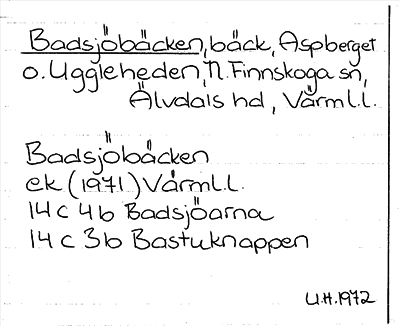 Badsjöbäcken, bäck, Aspberget
o. Uggleheden, N. Finnskoga sn,
Älvdals hd, Värml.l.
Badsjöbäcken
ek (1971) Värml.l.
14 c 4b Badsjöarna
14 c 3b Bastuknappen
U.H. 1972